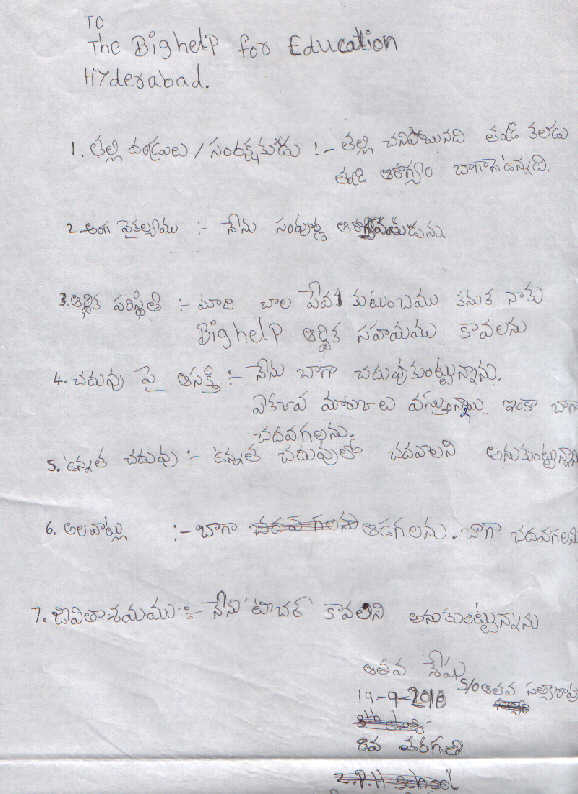 To
The Bighelp for Education
Hyderabad.
1. తల్లి తండ్రులు / సంరక్షకుడు :- తల్లి చనిపోయినది తండ్రి కలడు
తండ్రి ఆరోగ్యం బాగానే ఉన్నది.
2. అంగ వైకల్యము :- నేను సంపూర్ణ ఆరోగ్యవంతుడును
3. ఆర్థిక పరిస్థితి :- మాది చాల పేద కుటుంబము కనుక నాకు
Bighelp ఆర్థిక సహాయము కావలను
4. చదువు పై ఆసక్తి :- నేను బాగా చదువుకుంట్టున్నాను.
మార్కులు వస్తున్నాయి. ఇంకా బాగా
చదవగలను.
5. ఉన్నత చదువు :- ఉన్నత చదువులో చదవాలని అనుకుంట్టున్నాను
6. అలవాట్లు :- బాగా ఆడగలను. బాగా చదవగలను
7. జీవితాశయము :- నేను టీచర్ కావలని అనుకుంట్టున్నాను
S/o